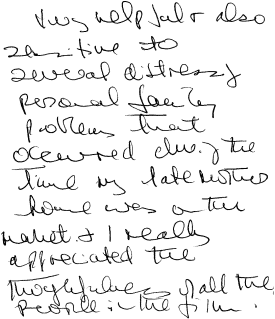 Very helpful & also
sensitive to
several distressing
personal family
problems that
occurred during the
time my late mothers
home was on the
market & I really
appreciated the
thoughtfulness of all the
people in the firm.